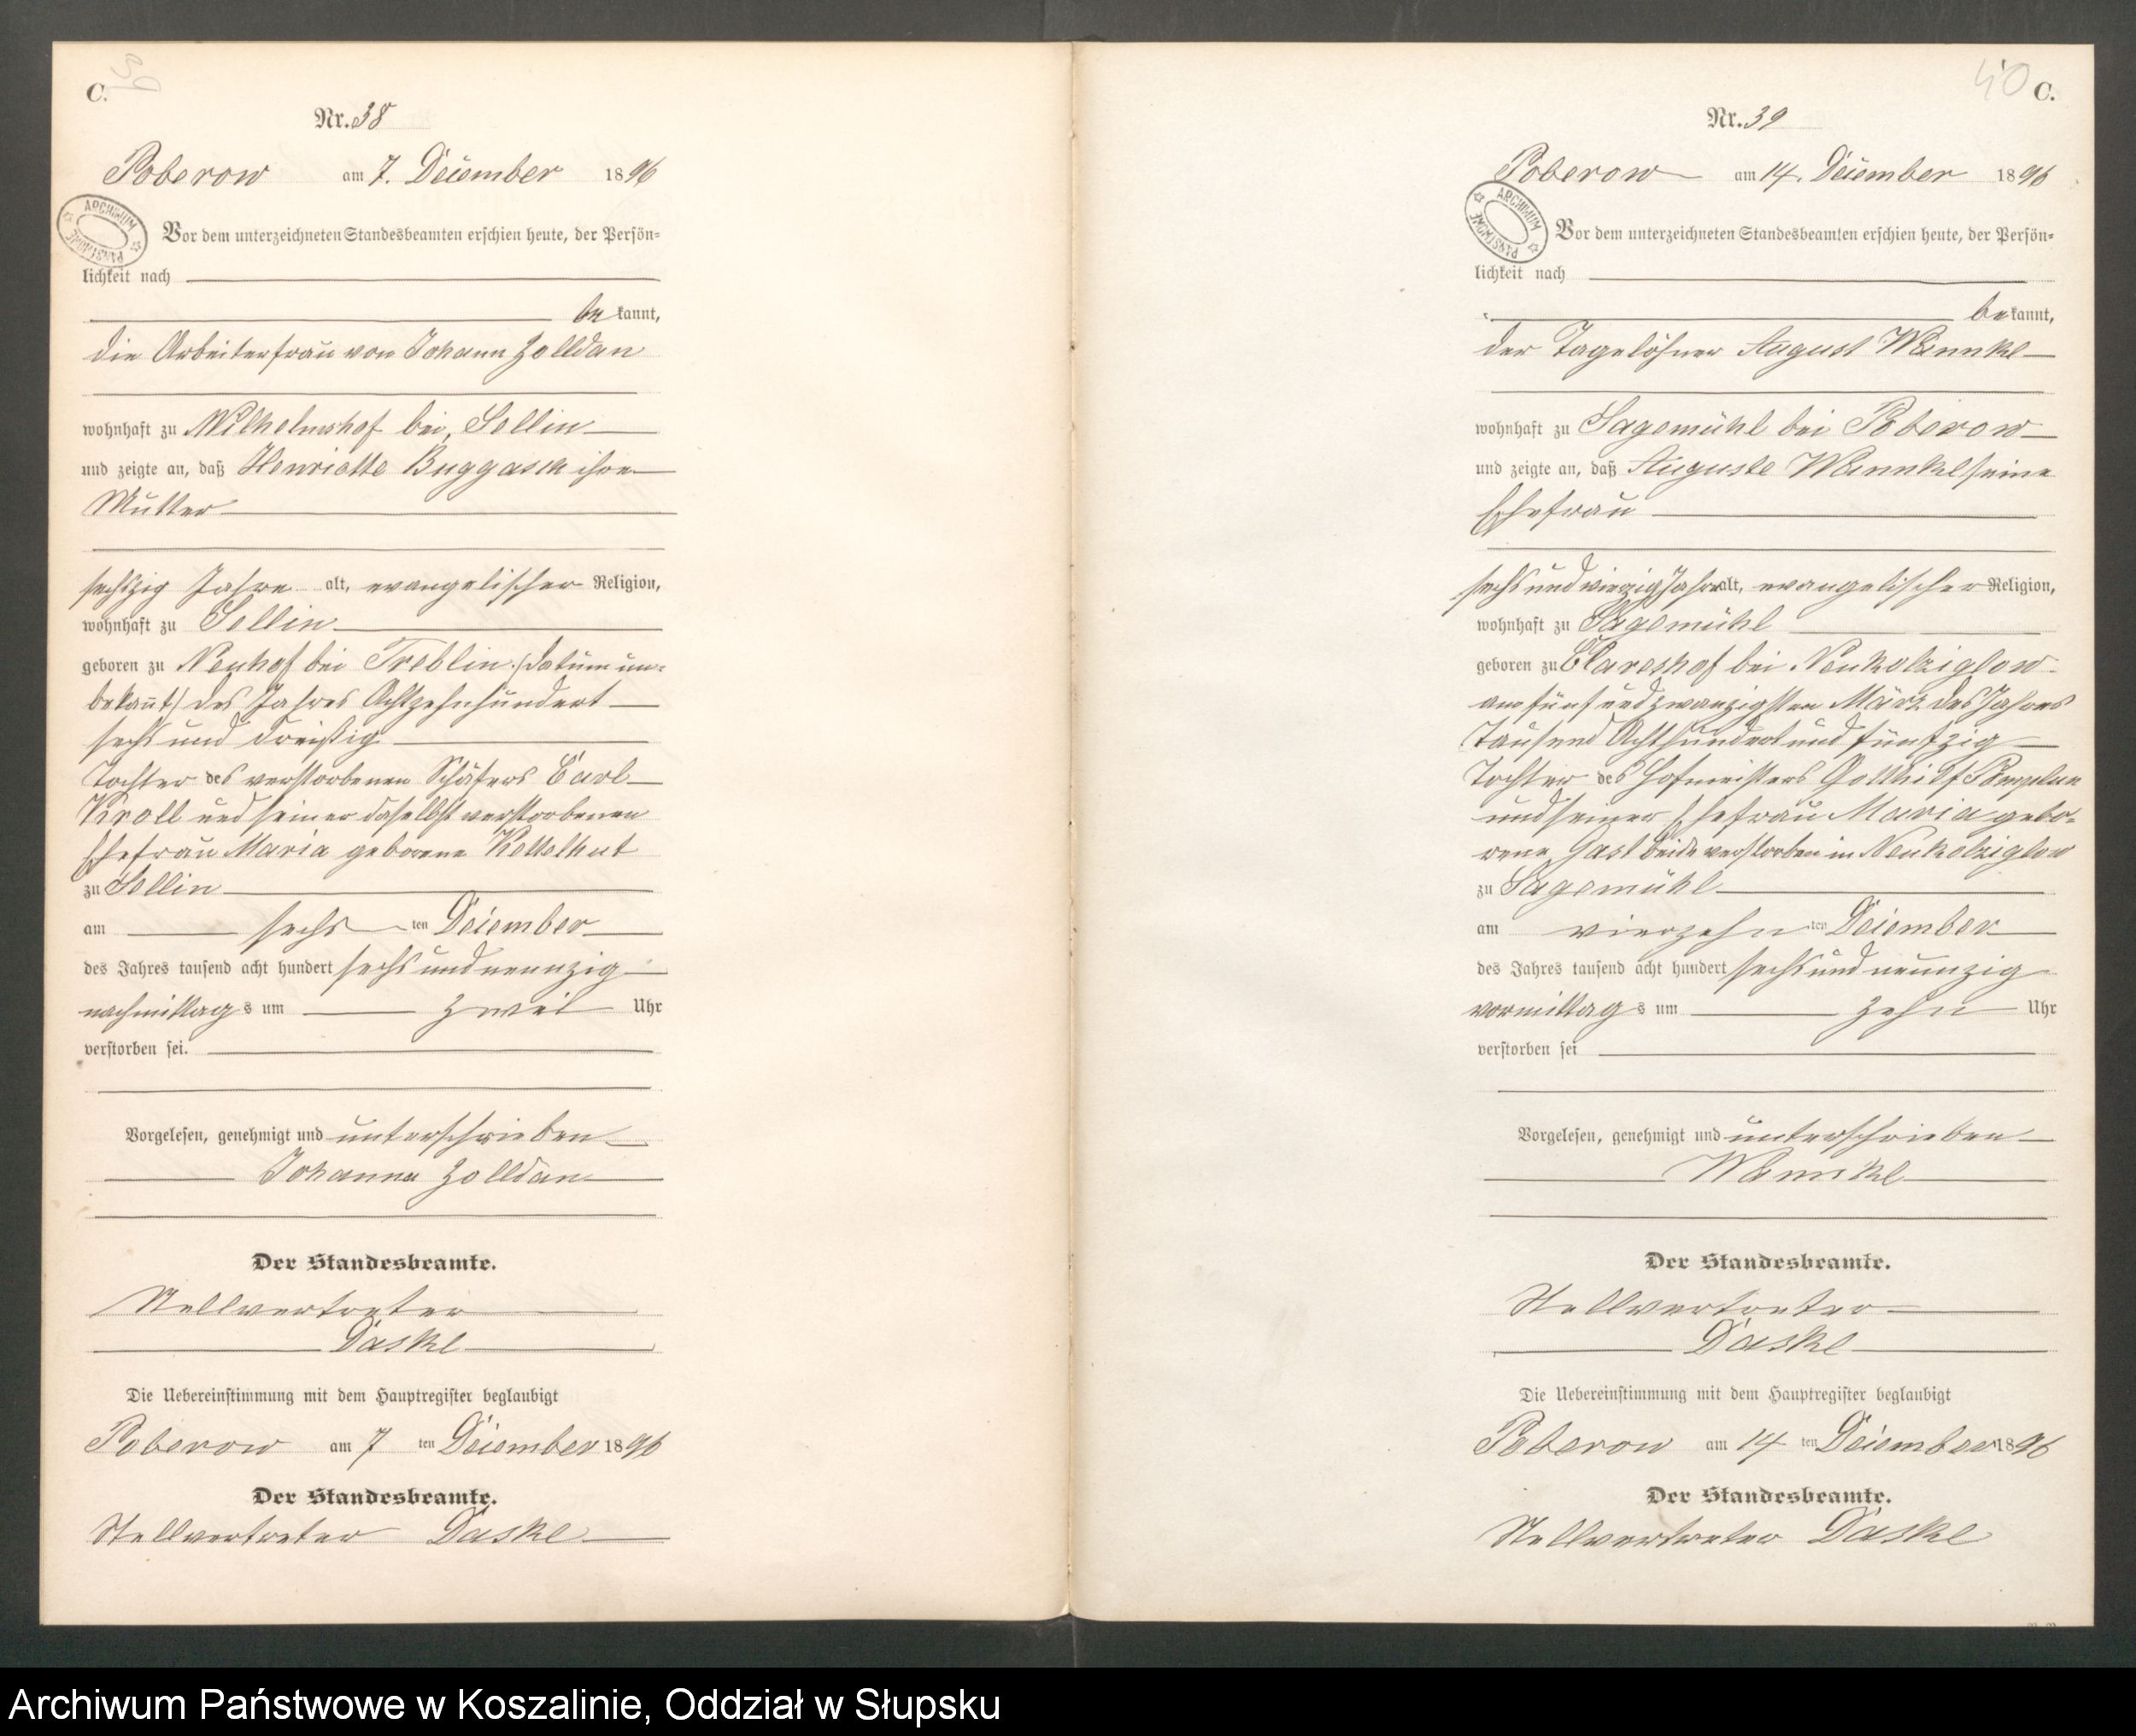 C.
39
Nr. 38
Poberow am 7. December 1896
ARCHIWUM PAŃSTWOWE
Vor dem unterzeichneten Standesbeamten erschien heute, der Persön=
lichkeit nach
be kannt,
die Arbeiterfrau von Johann Zolldan
wohnhaft zu Wilhelmshof bei Sellin
und zeigte an, daß Henriette Buggasch ihre
Mutter
sechszig Jahre alt, evangelischer Religion,
wohnhaft zu Sellin
geboren zu Neuhof bei Treblin (Datum un=
bekannt) des Jahres Achtzehnhundert
sechs und dreißig
Tochter des verstorbenen Schäfers Carl
Kroll und seiner daselbst verstorbenen
Ehefrau Maria geborene Kettelhut
zu Sellin
am sechs ten December
des Jahres tausend acht hundert sechs und neunzig
nachmittag s um zwei Uhr
verstorben sei.
Vorgelesen, genehmigt und unterschrieben
Johanna Zolldan
Der Standesbeamte.
Stellvertreter
Daske
Die Uebereinstimmung mit dem Hauptregister beglaubigt
Poberow am 7 ten December 1896
Der Standesbeamte.
Stellvertreter Daske
40 C.
Nr. 39
Poberow am 14. December 1896
ARCHIWUM PAŃSTWOWE
Vor dem unterzeichneten Standesbeamten erschien heute, der Persön=
lichkeit nach
be kannt,
der Tagelöhner August
wohnhaft zu Sagemühl bei Poberow
und zeigte an, daß Auguste seine
Ehefrau
sechs und vierzig Jahre alt, evangelischer Religion,
wohnhaft zu Sagemühl
geboren zu Clareshof bei Neukolziglow
am fünf und zwanzigsten März des Jahres
Tausend Achthundert und fünfzig
Tochter des Hofmeisters Gotthilf
und seiner Ehefrau Maria gebo=
rene Gast beide verstorben in Neukolziglow
zu Sagemühl
am vierzehn ten December
des Jahres tausend acht hundert sechs und neunzig
vormittag s um zehn Uhr
verstorben sei
Vorgelesen, genehmigt und unterschrieben
Der Standesbeamte.
Stellvertreter
Daske
Die Uebereinstimmung mit dem Hauptregister beglaubigt
Poberow am 14 ten December 1896
Der Standesbeamte.
Stellvertreter Daske
Archiwum Państwowe w Koszalinie, Oddział w Słupsku